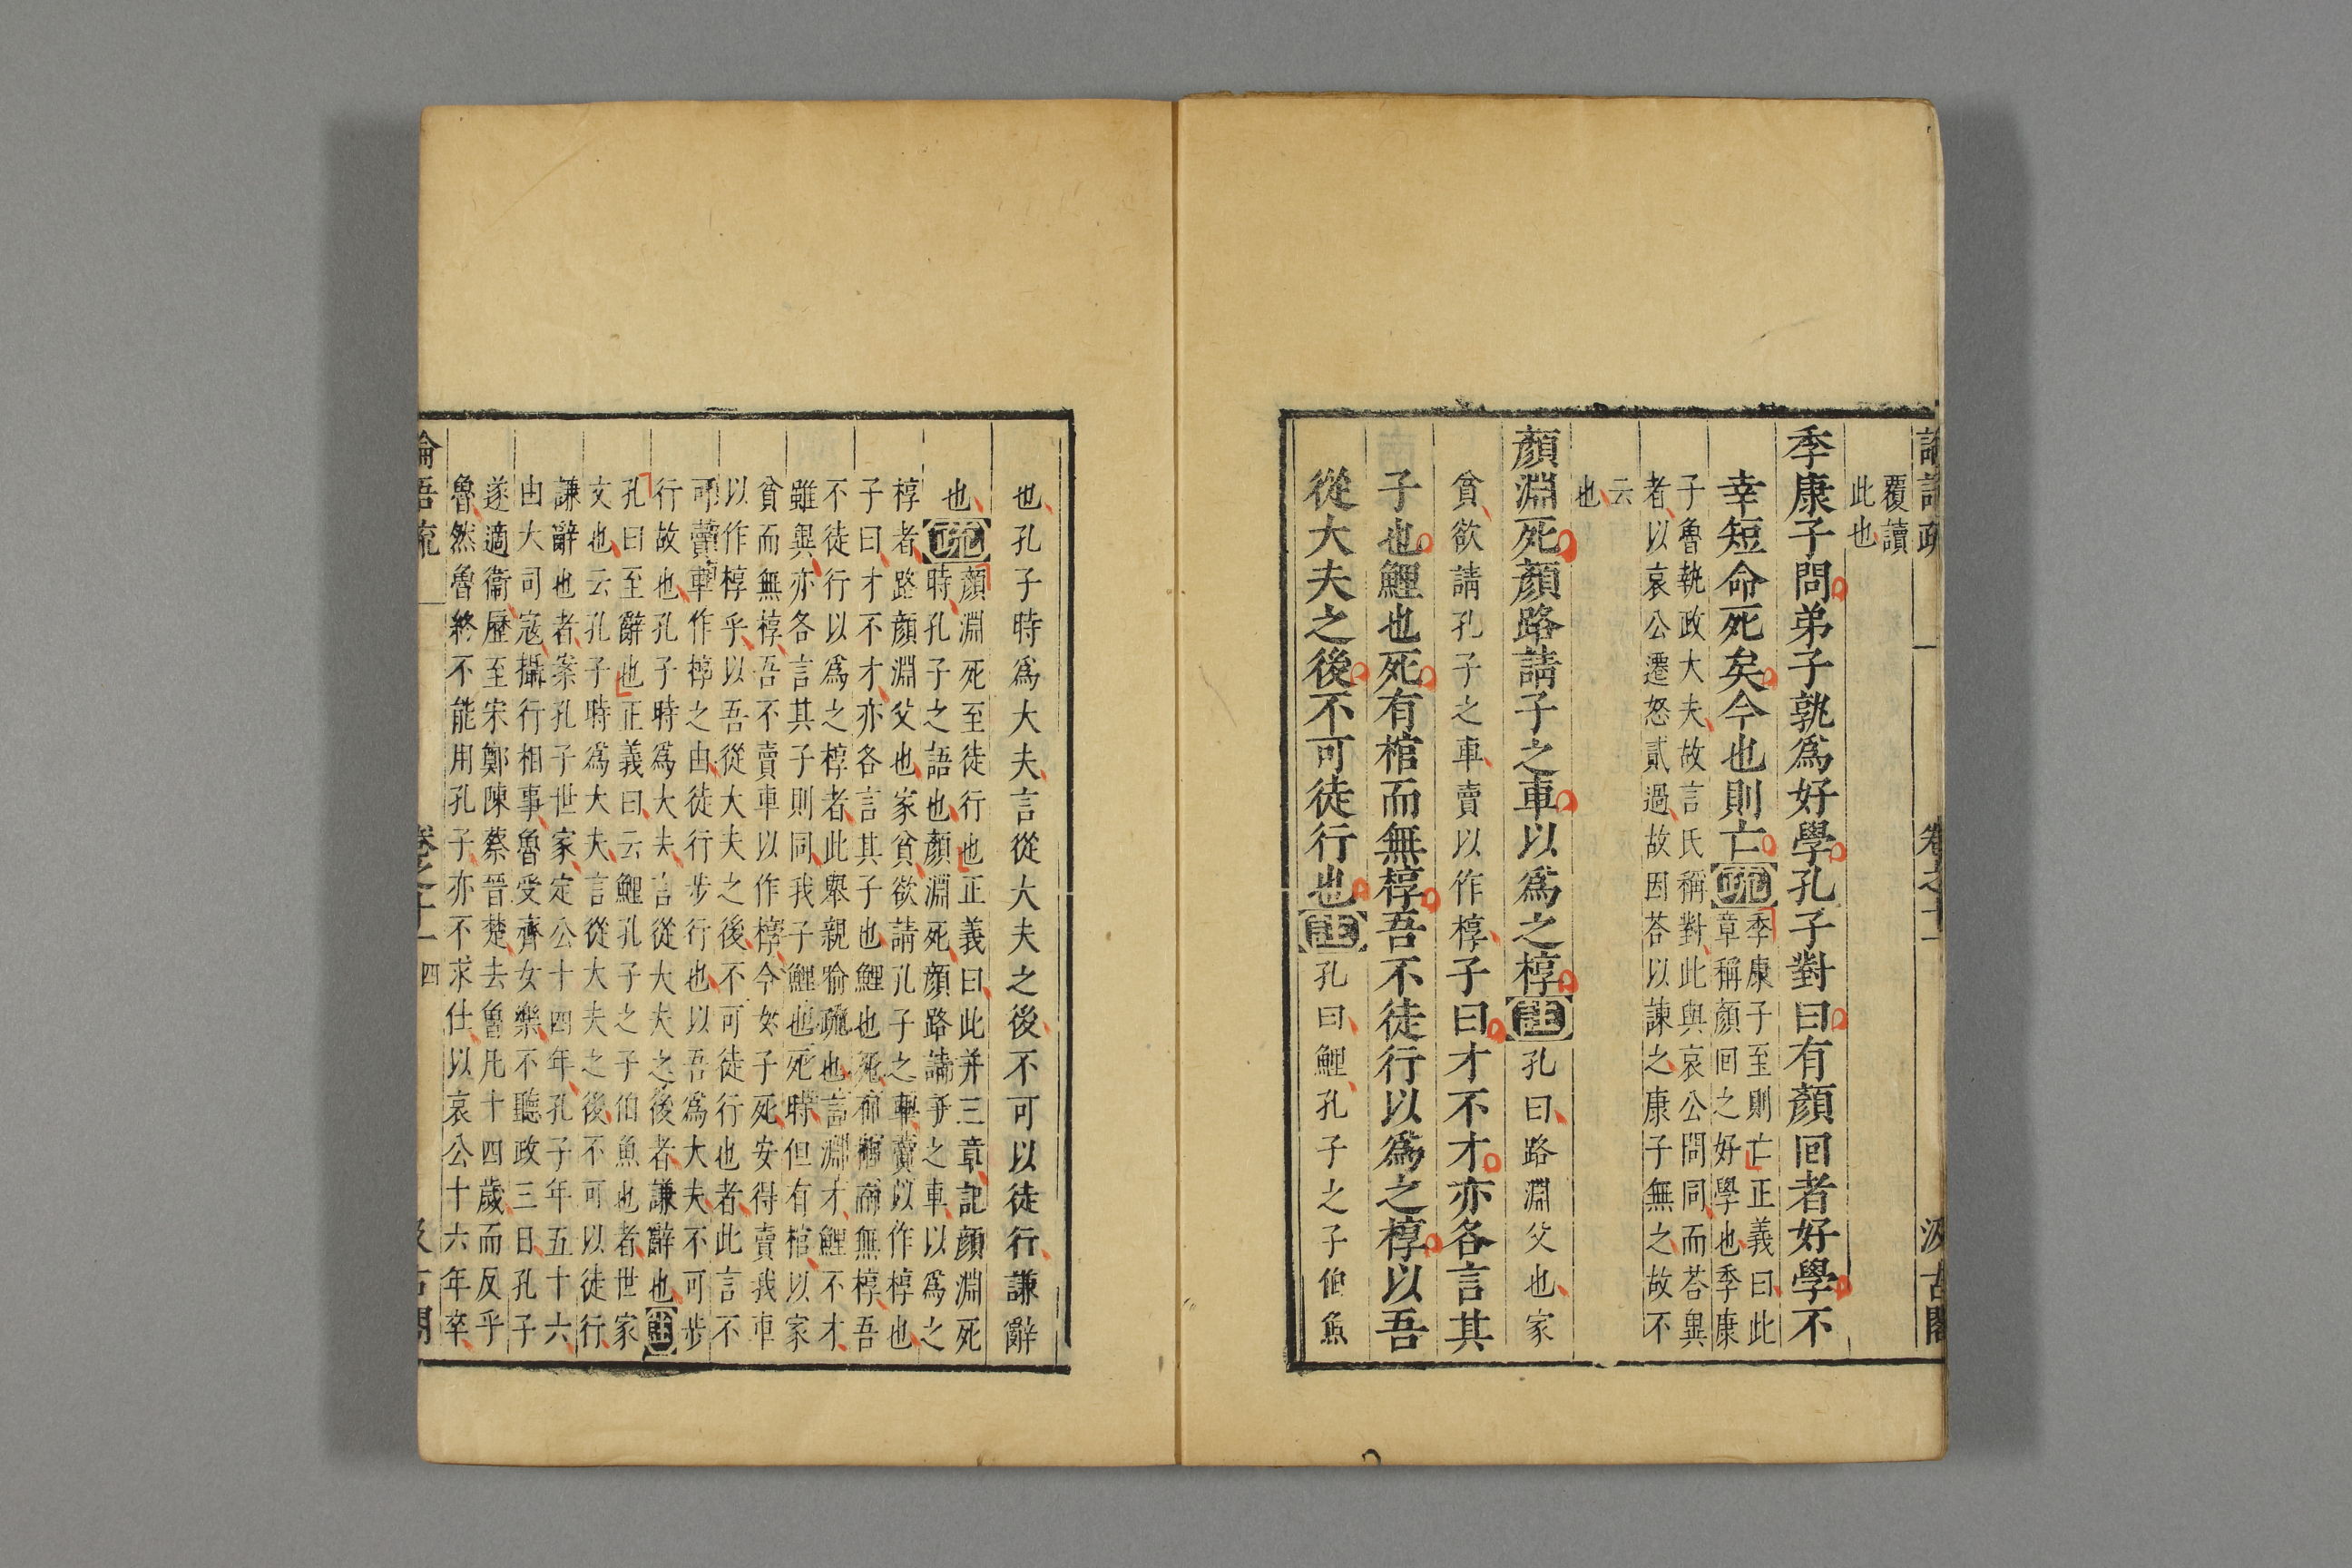 論語疏 卷之十一 汲古閣
覆讀
此也
季康子問弟子孰爲好學孔子對曰有顏回者好學不
幸短命死矣今也則亡疏
季康子至則亡正義曰此
章稱顏回之好學也季康
子魯執政大夫故言氏稱對此與哀公問同而荅異
者以哀公遷怒貳過故因荅以諫之康子無之故不
云
也
顏淵死顏路請子之車以爲之椁註孔曰路淵父也家
貧欲請孔子之車賣以作椁子曰才不才亦各言其
子也鯉也死有棺而無椁吾不徒行以爲之椁以吾
從大夫之後不可徒行也註孔曰鯉孔子之子伯魚
也孔子時爲大夫言從大夫之後不可以徒行謙辭
也疏
顏淵死至徒行也正義曰此并三章記顏淵死
時孔子之語也顏淵死顏路請子之車以爲之
椁者路顏淵父也家貧欲請孔子之車賣以作椁也
子曰才不才亦各言其子也鯉也死有棺而無椁吾
不徒行以爲之椁者此舉親喻疏也言淵才鯉不才
雖異亦各言其子則同我子鯉也死時但有棺以家
貧而無椁吾不賣車以作椁今女子死安得賣我車
以作椁乎以吾從大夫之後不可徒行也者此言不
可賣車作椁之由徒行步行也以吾爲大夫不可步
行故也孔子時爲大夫言從大夫之後者謙辭也註
孔曰至辭也正義曰云鯉孔子之子伯魚也者世家
文也云孔子時爲大夫言從大夫之後不可以徒行
謙辭也者案孔子世家定公十四年孔子年五十六
由大司寇攝行相事魯受齊女樂不聽政三日孔子
遂適衞歷至宋鄭陳蔡晉楚去魯凡十四歲而反乎
魯然魯終不能用孔子亦不求仕以哀公十六年卒
論語疏 卷之十一 四 汲古閣